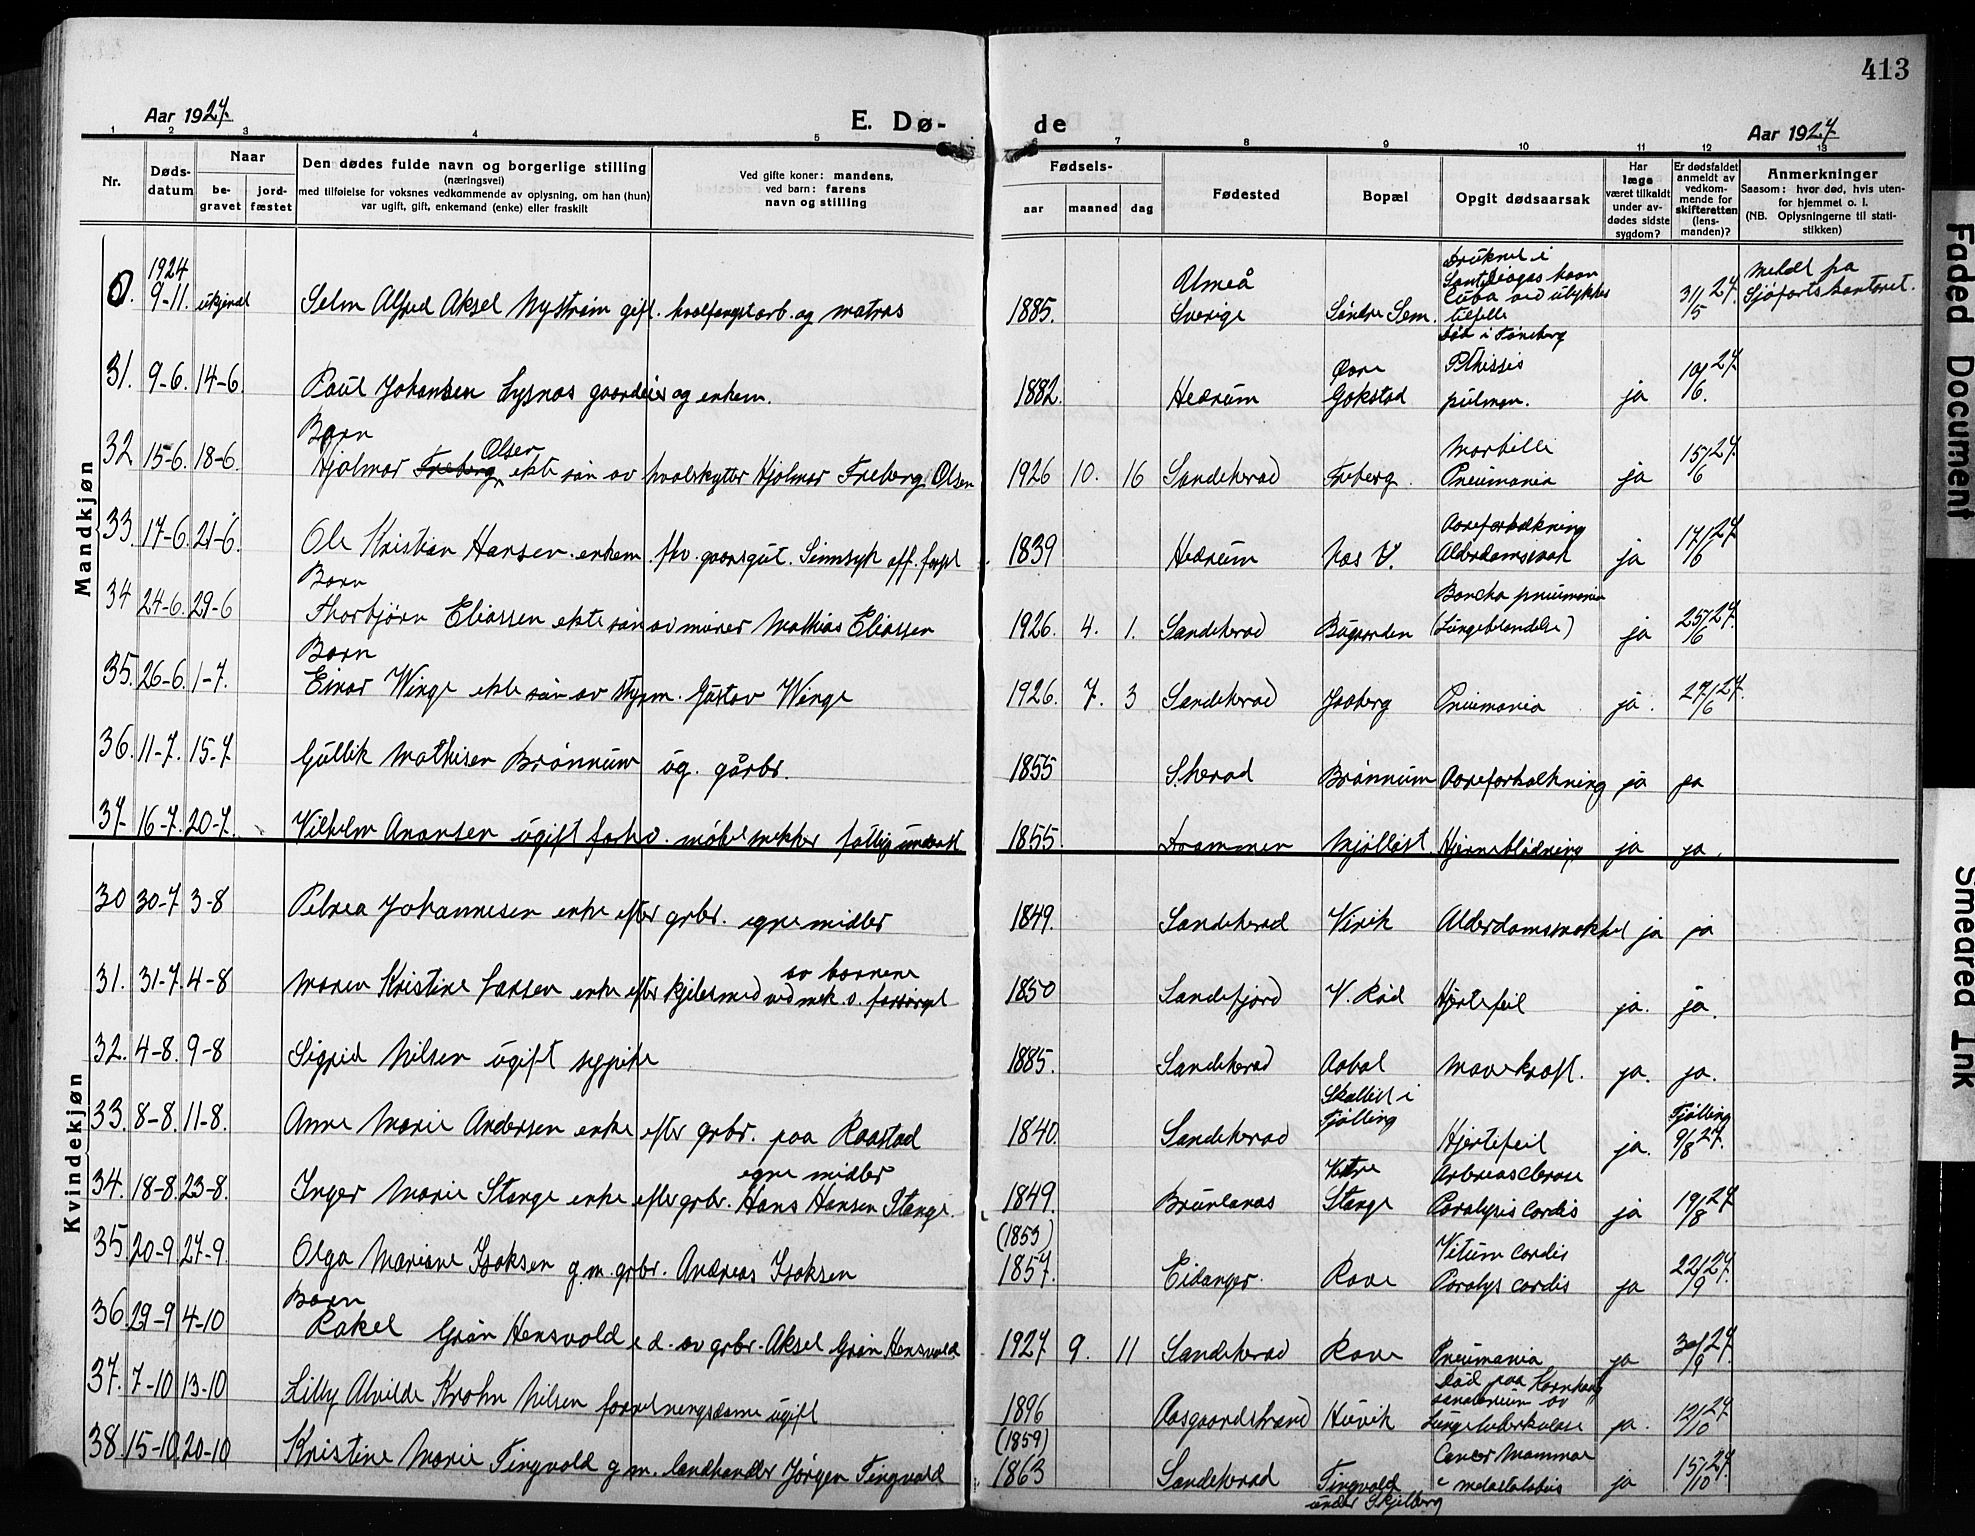 413
Aar 1927.
E. Dø-
de
Aar 1927
1 2 3 4 5 6 7 8 9 10 11 12 13
Nr.
Døds-
datum
Naar
be-
gravet
jord-
fæstet
Den dødes fulde navn og borgerlige stilling
(næringsvei)
med tilføielse for voksnes vedkommende av oplysning, om han (hun)
var ugift, gift, enkemand (enke) eller fraskilt
Ved gifte koner: mandens,
ved barn: farens
navn og stilling
Fødsels-
aar maaned dag
Fødested
Bopæl
Opgit dødsaarsak
Har
læge
været tilkaldt
under av-
dødes sidste
sygdom?
Er dødsfaldet
anmeldt av
vedkom-
mende for
skifteretten
(lens-
manden)?
Anmerkninger
Saasom: hvor død, hvis uten-
for hjemmet o. l.
(NB. Oplysningerne til stati-
stikken)
Mandkjøn
0. 1924 9-11. ukjendt Selm Alfred Aksel Nystrøm gift. hvalfangstarb. og matros 1885. Umeå Sverige Søndre Sem. Druknet i havn Cuba ved ulykkestilfelle 31/5 27. Meldt fra Sjøfartskontoret.
31. 9-6. 14-6. Paul Johansen Lysnes gaardeier og enkem. 1882. Hedrum Øvre Gokstad Pthissis pulmon. ja 10/6 27.
32 15-6. 18-6. Barn Hjalmar Freberg Olsen ekte søn av hvalskytter Hjalmar Freberg Olsen 1926 10. 16 Sandeherad Freberg. Morbilli Pneumonia ja 15/6 27.
33. 17-6. 21-6. Ole Kristian Hansen. enkem. fhv. gaardsgut. Sinnsyk off. forpl 1839 Hedrum Nes V. Aareforkalkning ja 17/6 27.
34 24-6. 29-6 Barn Thorbjørn Eliassen ekte søn av murer Mathias Eliassen 1926. 4. 1. Sandeherad Bugaarden Broncho pneumonia (Lungebetendelse) ja 25/6 27.
35. 26-6. 1-7. Barn Einar Winge ekte søn av styrm. Gustav Winge 1926. 7. 3 Sandeherad Jaaberg Pneumonia ja. 27/6 27.
36. 11-7. 15-7 Gullik Mathisen Brønnum ug. gårbr. 1855 S.herad Brønnum Aareforkalkning ja ja
37. 16-7. 20-7. Vilhelm Arontsen ugift forhv. møbelsnekker fattigunderst 1855. Drammen Mjølløst. Hjerneblødning ja ja.
Kvindekjøn
30 30-7 3-8 Petrea Johannesen enke efter grbr. egne midler 1849. Sandeherad Virik Alderdomssvakhet ja ja
31. 31-7. 4-8 Maren Kristine Larsen enke efter kjelesmed ved mek. v. forsørget av barnene 1850 Sandefjord V. Rød Hjertefeil ja. ja.
32. 4-8. 9-8 Sigrid Nilsen ugift sypike 1885. Sandeherad Aabol Mavekræft. ja. ja.
33. 8-8. 11-8. Anne Marie Andersen enke efter grbr. paa Raastad 1840. Sandeherad Skallist i Tjølling Hjertefeil ja. Tjølling 9/8 27.
34. 18-8. 23-8. Inger Marie Stange enke efter grbr. Hans Hansen Stange. egne midler 1849. Brunlanes Vestre Stange Arteriosclerose Paralysis cordis ja 19/8 27.
35. 20-9 27-9. Olga Mariane Isaksen g.m. grbr. Andreas Isaksen (1853) 1857. Eidanger. Rove Vitium cordis Paralys cordis ja 22/9 27.
36. 29-9 4-10 Barn Rakel Grøn Hensvold e.d. av grbr. Aksel Grøn Hensvold 1927 9. 11 Sandeherad Rove Pneumonia ja 30/9 27.
37. 7-10 13-10 Lilly Alvilde Krohn Nilsen forretningsdame ugift 1896 Aasgaardstrand Huvik Død paa Kornhaug sanatorium av Lungetuberkulose ja. 12/10 27.
38. 15-10. 20-10 Kristine Marie Tingvold g.m. landhandler Jørgen Tingvold (1859) 1863 Sandeherad Tingvold under Skjelberg Cancer Mammae ja 15/10 27.
Faded Document
Smeared Ink